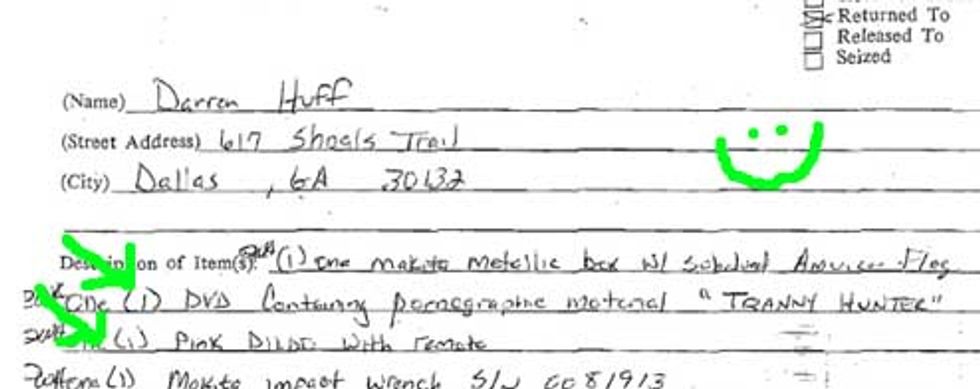 Returned To
Released To
Seized
(Name) Darren Huff
(Street Address) 617 Shoals Trail
(City) Dallas , GA 30132
Description of Item(s): (1) one makita metallic box W/ American Flag
One (1) DVD Containing pornographic material "TRANNY HUNTER"
(1) Pink DILDO With remote
(1) Makita impact Wrench S/N CC81913